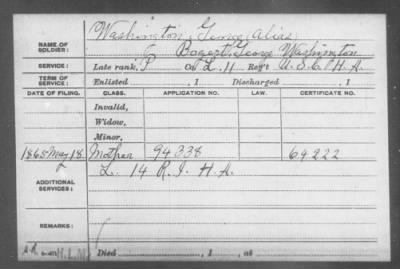 Washington, George (Alias)
NAME OF SOLDIER: Bogert, George Washington
SERVICE: Late rank, P Co. L, 11 Reg't U.S.C.H.A.
TERM OF SERVICE: Enlisted , 1 Discharged , 1
DATE OF FILING. CLASS. APPLICATION NO. LAW. CERTIFICATE NO.
Invalid,
Widow,
Minor,
1865 May 18 Mother 94338 64222
ADDITIONAL SERVICES: L. 14 R.I.H.A.
REMARKS:
Died , 1 , at